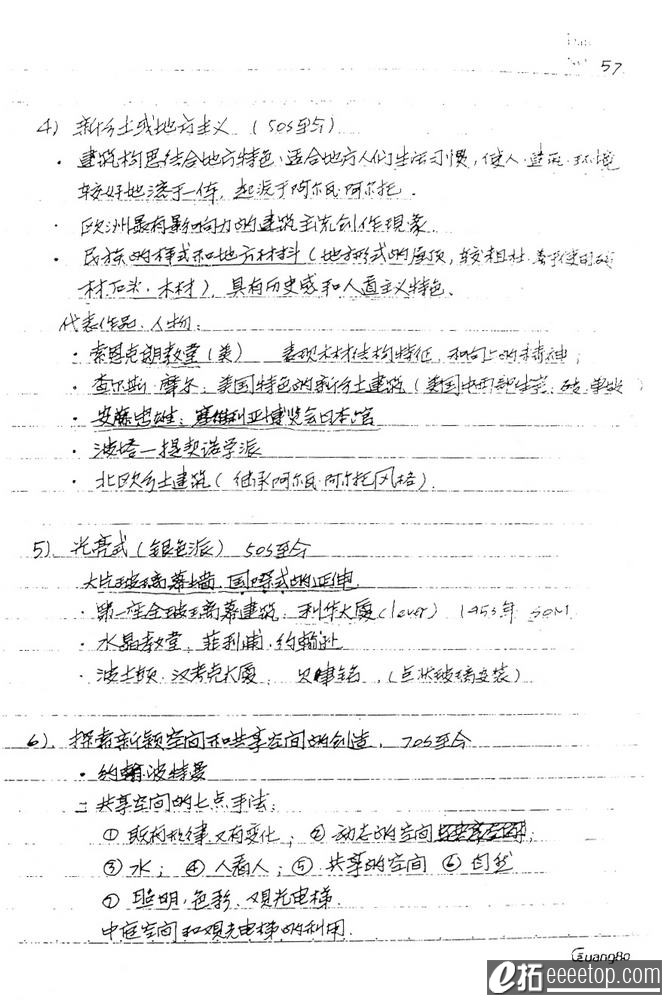 57
4) 新乡土或地方主义 (50s至今)
· 建筑构思结合地方特色·适合地方人们生活习惯,使人·建筑·环境
较好地溶于一体,起源于阿尔瓦阿尔托.
· 欧洲最有影响力的建筑主流创作现象
· 民族的样式和地方材料(地方形式的屋顶,较粗壮
材石头·木材),具有历史感和人道主义特色、
代表作品·人物:
· 索恩克朗教堂(美) 表现木材结构特征,和向上的精神;
· 查尔斯·摩尔:美国特色的新乡土建筑(美国中西部
· 安藤忠雄:塞维利亚博览会日本馆
· 波塔—提契诺学派
· 北欧乡土建筑(继承阿尔瓦阿尔托风格)
5) 光亮式(银色派) 50s至今
大片玻璃幕墙.国际式的延伸
· 第一座全玻璃幕建筑:利华大厦(lever) 1953年 SOM
· 水晶教堂,菲利浦·约翰逊
· 波士顿·汉考克大厦: 贝聿铭.(点状玻璃安装)
6)、探索新颖空间和共享空间的创造. 70s至今
· 约翰波特曼
= 共享空间的七点手法:
① 既有规律又有变化; ② 动态的空间
③ 水; ④ 人看人; ⑤ 共享的空间 ⑥ 自然
⑦ 照明,色彩.观光电梯.
中庭空间和观光电梯的利用.
GuangBo
e拓 eeeetop.com